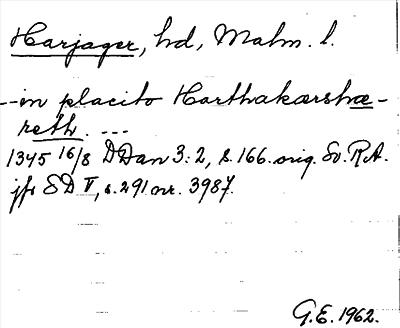 Harjager, hd, Malm. l.
--in placito Harthakærshæ-
reth. ---
1345 16/8 DDan 3:2, s. 166. orig. Sv. R.A.
jfr SD V, s. 291 nr. 3987.
G.E. 1962.